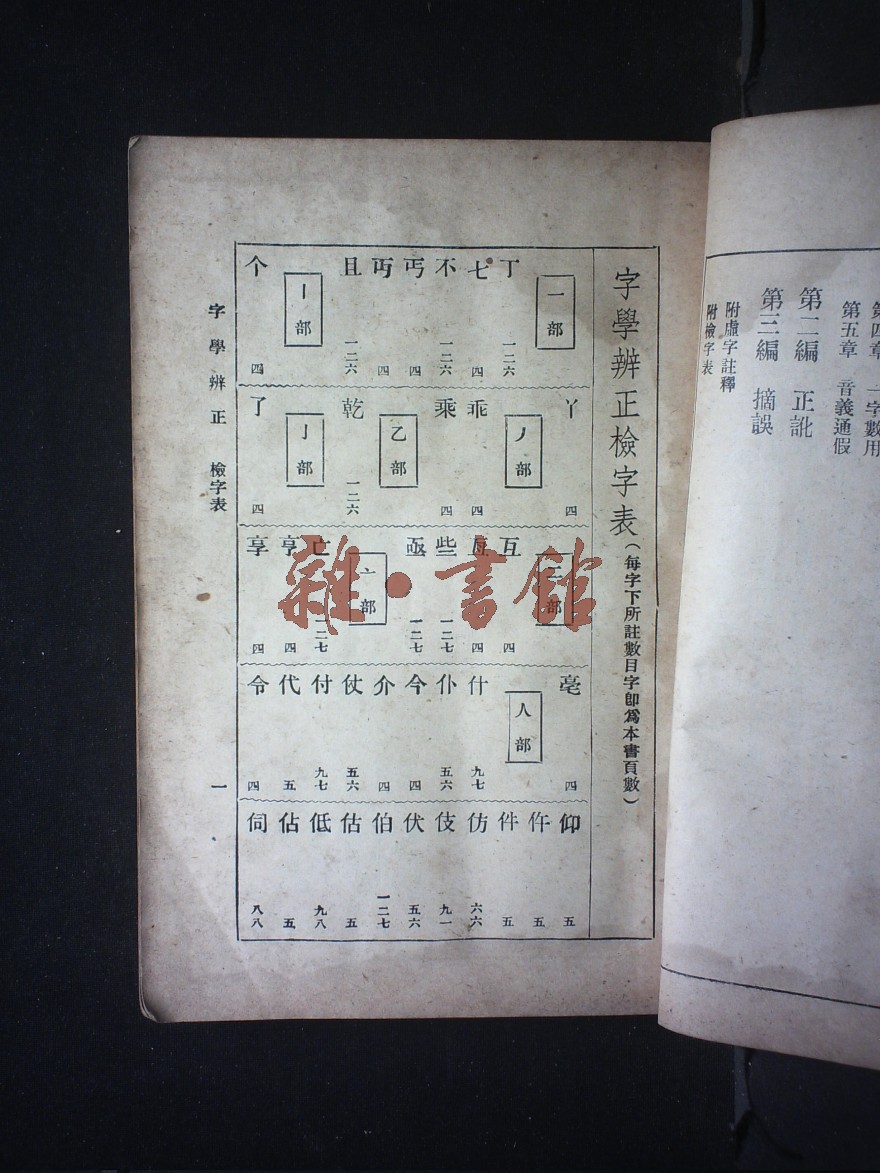 第四章 一字數用
第五章 音義通假
第二編 正訛
第三編 摘誤
附虛字註釋
附檢字表
字學辨正檢字表（每字下所註數目字卽爲本書頁數）
一部
丁 一二六
七 四
不 一二六
丐 四
丏 四
且 一二六
丨部
个 四
丫 四
丿部
乖 四
乘 四
乙部
乾 一二六
亅部
了 四
二部
互 四
四
些 一二七
亟 一二七
亠部
亡 一二七
亨 四
享 四
亳 四
人部
什 九七
仆 五六
今 四
介 四
仗 五六
付 九七
代 五
令 四
仰 五
仵 五
件 五
仿 六六
伎 九一
伏 五六
伯 一二七
估 五
低 九八
佔 五
伺 八八
字學辨正 檢字表 一
雜·書館